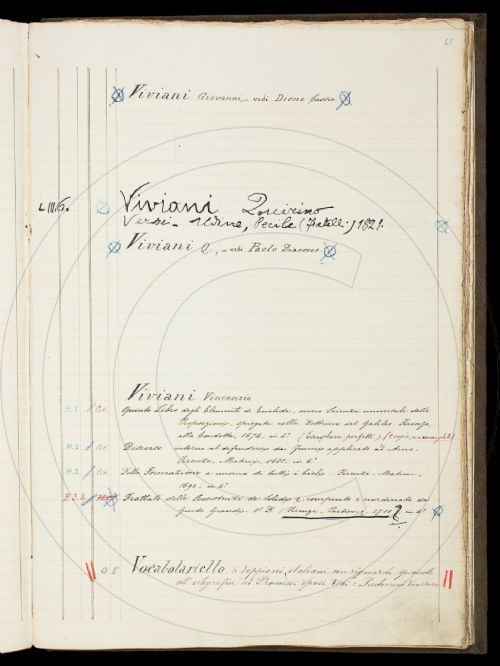 27
Viviani Giovanni, - vedi Dione Cassio.
L III 6. Viviani Quirino
Versi - Udine, Pecile (Fratelli) 1821.
Viviani Q., - vedi Paolo Diacono
Viviani Vincenzio
H. 2 Quinto Libro degli Elementi di Euclide, ovvero Scienza universale delle
Proporzioni, spiegata colla dottrina del Galileo. Firenze,
alla Condotta, 1674. in 4° (Esemplare perfetto)
H. 2 Discorso intorno al difendersi da' fiumi applicato ad Arno.
Firenze, Matini, 1688. in 4°
H. 2 Della Formazione e misura di tutti i cieli. Firenze, Matini,
in 4°
B. 3. 8. Trattato delle Resistenze de' Solidi compiuto e riordinato da
Guido Grandi. (Firenze, Tartini, in 4°
O 5 Vocabolarietto di doppioni italiani con riguardo speciale
all' ortografia dei Promessi Sposi. Vedi: